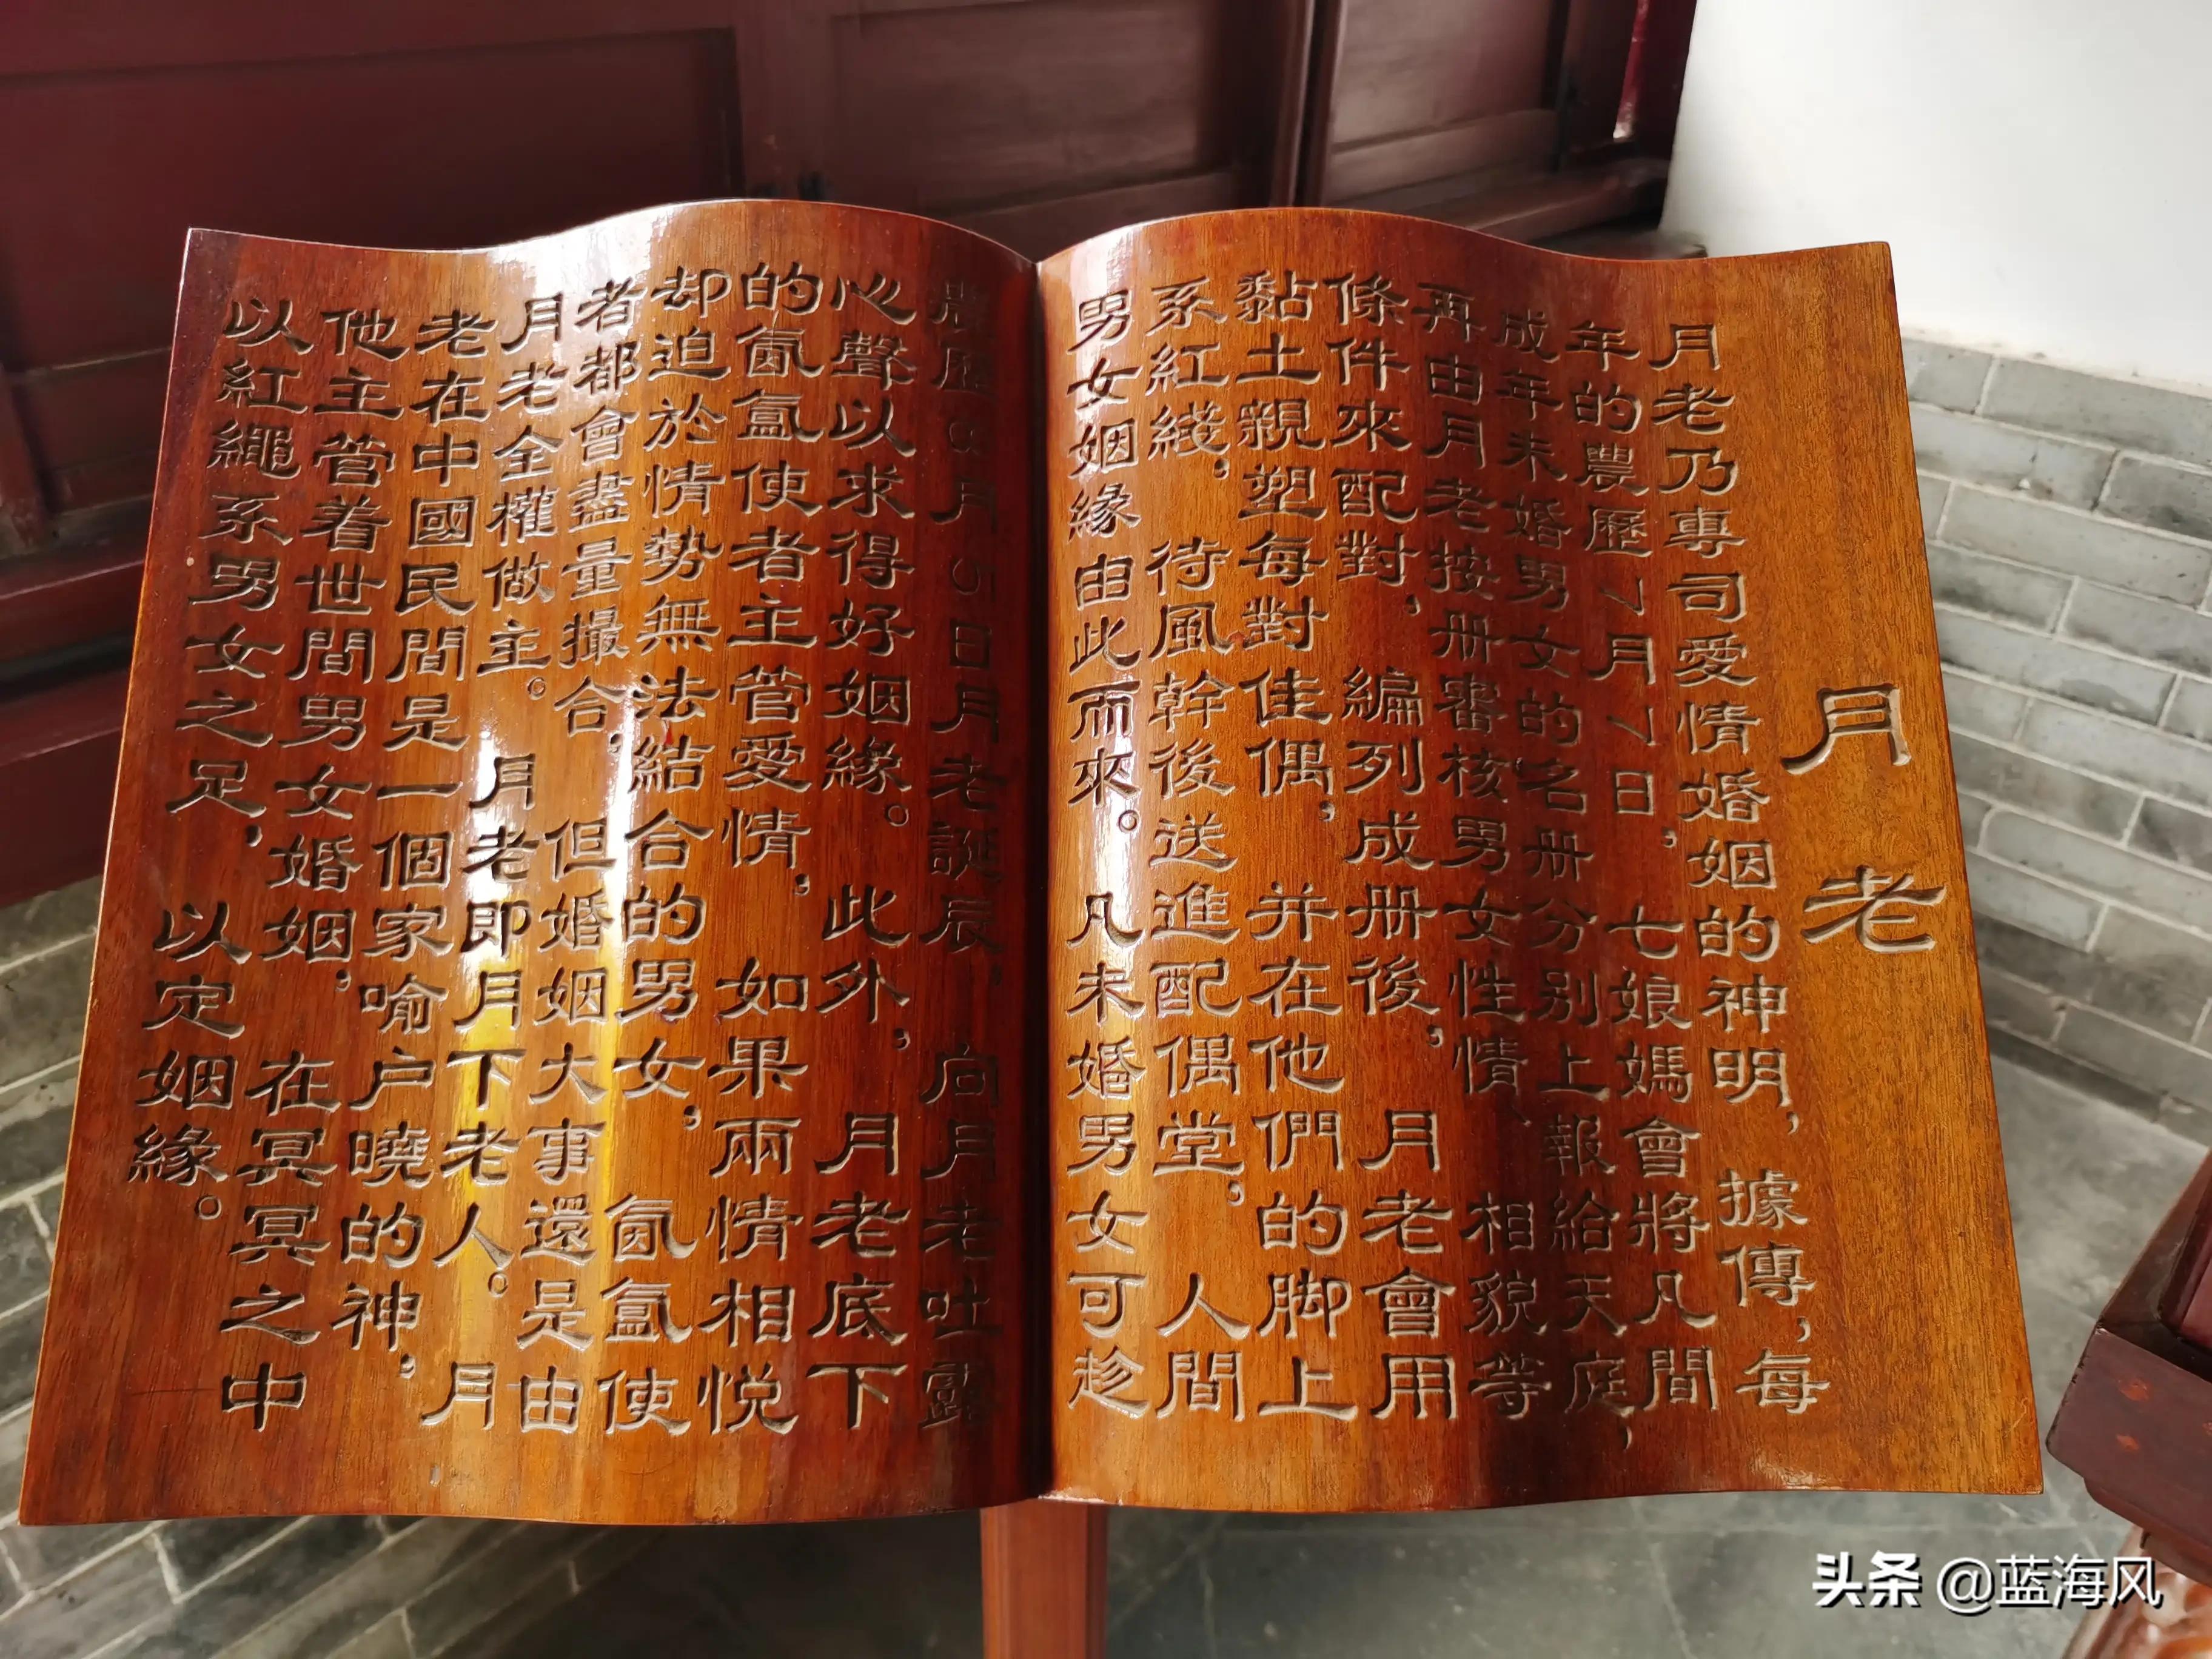 月老
月老乃專司愛情婚姻的神明，據傳，每
年的農歷7月7日，七娘媽會將凡間
成年未婚男女的名册分别上報給天庭，
再由月老按册審核男女性情、相貌等
條件來配對，編列成册後，月老會用
黏土親塑每對佳偶，并在他們的脚上
系紅綫，待風幹後送進配偶堂，人間
男女姻緣由此而來。凡未婚男女可趁
農歷8月15日月老誕辰，向月老吐露
心聲以求得好姻緣。此外，月老底下
的氤氲使者主管愛情，如果兩情相悦
却迫於情勢無法結合的男女，氤氲使
者都會盡量撮合，但婚姻大事還是由
月老全權做主。月老即月下老人。月
老在中國民間是一個家喻户曉的神，
他主管着世間男女婚姻，在冥冥之中
以紅繩系男女之足，以定姻緣。
头条 @蓝海风